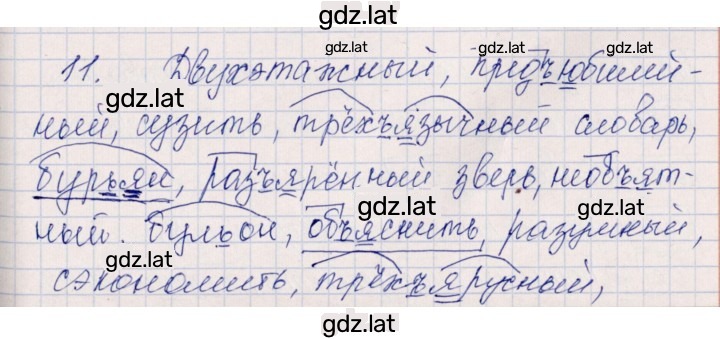 gdz.lat
gdz.lat
gdz.lat
11. Двухэтажный, предъюбилей-
gdz.lat
ный, сузить, трёхъязычный словарь,
gdz.lat
gdz.lat
бурьян, разъярённый зверь, необъят-
ный. бульон, объяснить, разумный,
gdz.lat
gdz.lat
сэкономить, трёхъярусный,
gdz.lat